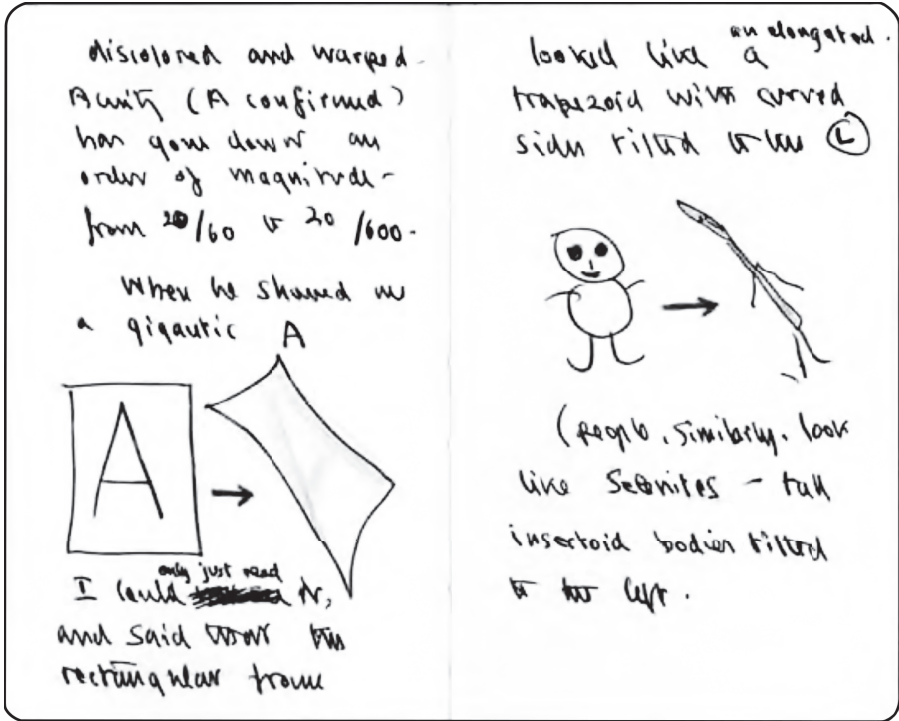 discolored and warped.
Acuity (A confirmed)
has gone down an
order of magnitude -
from 20/60 to 20/600.
When he showed me
a gigantic A
A
I could only just read it,
and said that the
rectangular frame
looked like an elongated
trapezoid with curved
sides tilted to the L
(people, similarly, look
like Selenites - tall
insectoid bodies tilted
to the left.